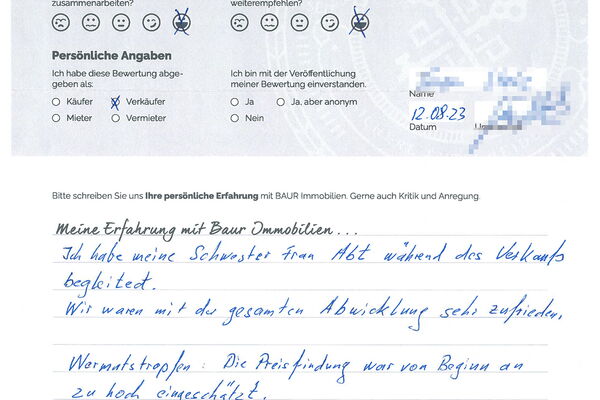 zusammenarbeiten?
weiterempfehlen?
Persönliche Angaben
Ich habe diese Bewertung abge-
geben als:
Käufer
Verkäufer
Mieter
Vermieter
Ich bin mit der Veröffentlichung
meiner Bewertung einverstanden.
Ja
Ja, aber anonym
Nein
Name
12.08.23
Datum
Bitte schreiben Sie uns Ihre persönliche Erfahrung mit BAUR Immobilien. Gerne auch Kritik und Anregung.
Meine Erfahrung mit Baur Immobilien...
Ich habe meine Schwester Frau Abt während des Verkaufs
begleitet.
Wir waren mit der gesamten Abwicklung sehr zufrieden.
Wermutstropfen: Die Preisfindung war von Beginn an
zu hoch eingeschätzt.